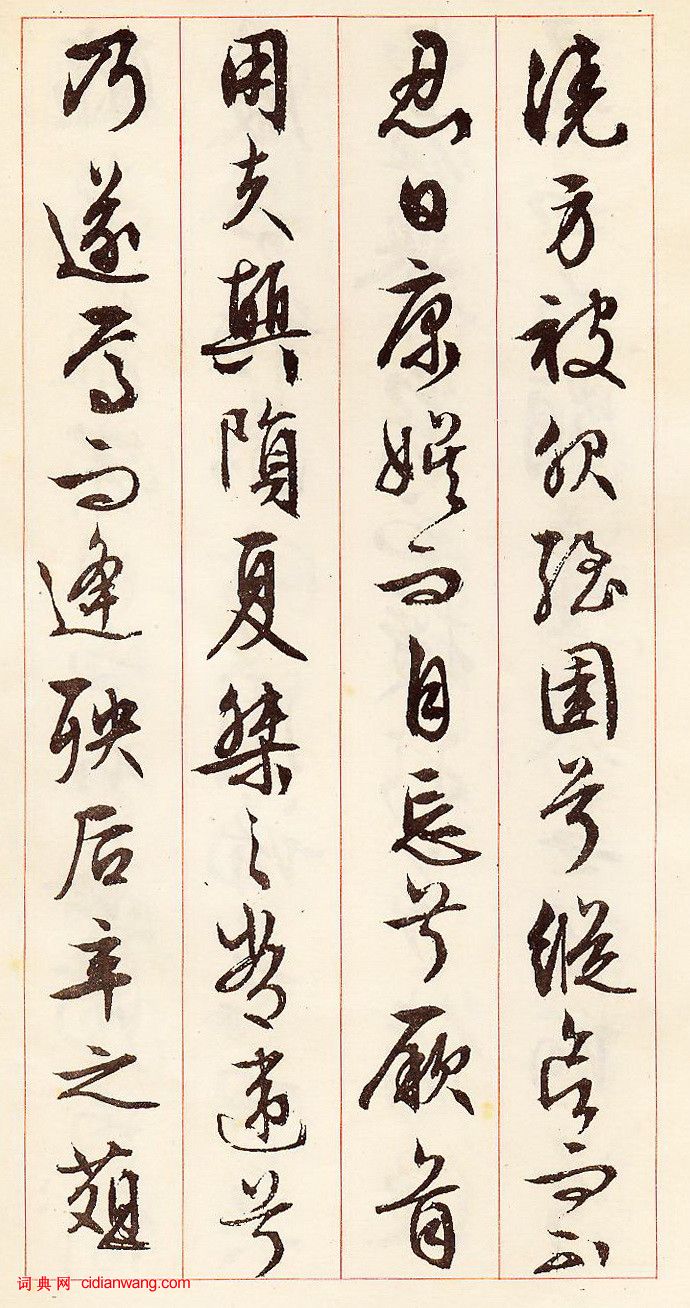 澆方被服強圉兮縱欲而不
忍日康娛而自忘兮厥首
用夫顛隕夏桀之常違兮
乃遂焉而逢殃后辛之菹
词典网 cidianwang.com